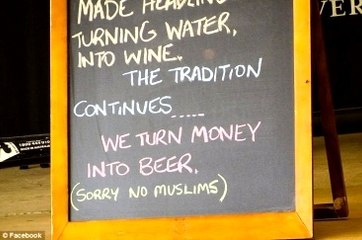 MADE HEADLIN
TURNING WATER,
INTO WINE.
THE TRADITION
CONTINUES.....
WE TURN MONEY
INTO BEER.
(SORRY NO MUSLIMS)
VER
© Facebook